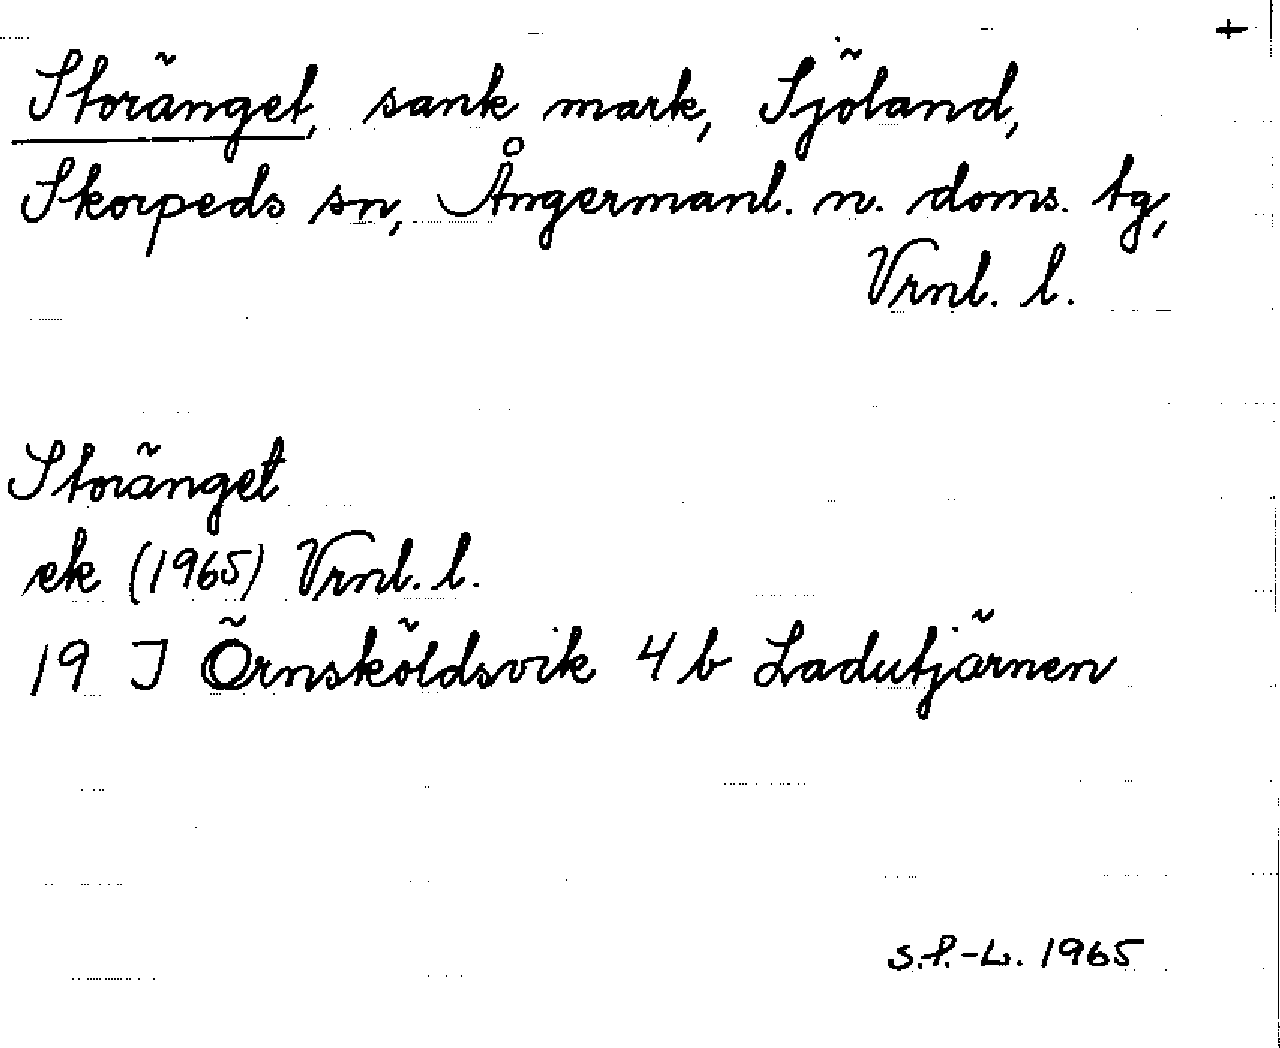 +
Storänget, sank mark, Sjöland,
Skorpeds sn, Ångermanl. n. doms. tg,
Vrnl. l.
Storänget
ek (1965) Vrnl. l.
19 J Örnsköldsvik 4 b Ladutjärnen
S.P.-L. 1965